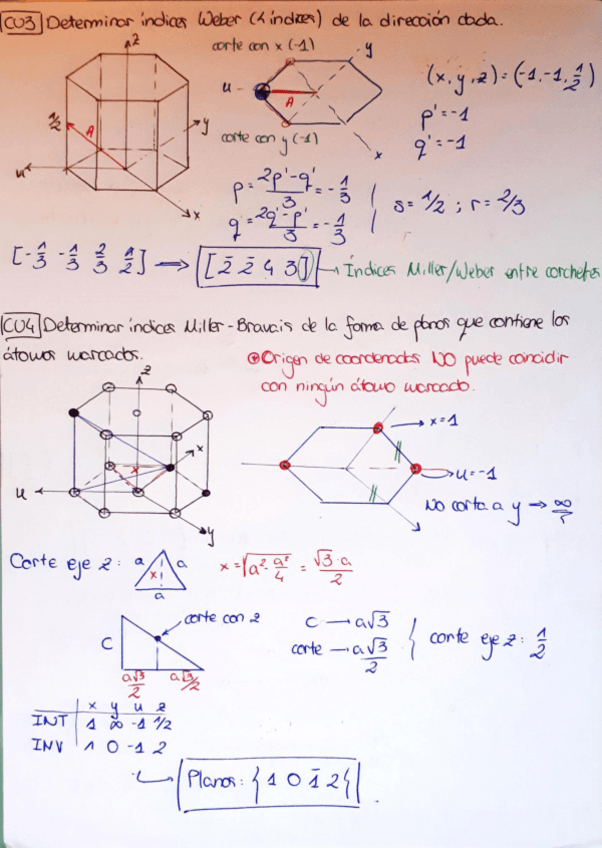 CU3 Determinar índices Weber (4 índices) de la dirección dada.
z
corte con x (-1)
y
(x, y, z) = (-1, -1, 1/2)
u
A
1/2
A
y
corte con y (-1)
x
p' = -1
q' = -1
u
x
p = 2p'-q'/3 = -1/3
q = 2q'-p'/3 = -1/3
s = 1/2 ; r = 2/3
[-1/3 -1/3 2/3 1/2] ⟹ [2̄ 2̄ 4 3] → Índices Miller/Weber entre corchetes
CU4 Determinar índices Miller-Bravais de la forma de planos que contiene los
átomos marcados.
Origen de coordenadas NO puede coincidir
con ningún átomo marcado.
z
x
x
u
y
x=1
u=-1
No corta a y → ∞
Corte eje z:
a
x
a
a
x = √(a² - a²/4) = √3·a/2
corte con z
C
a√3/2
a√3/2
c → a√3
corte → a√3/2
corte eje z: 1/2
x y u z
INT 1 ∞ -1 1/2
INV 1 0 -1 2
Planos: {1 0 1̄ 2}